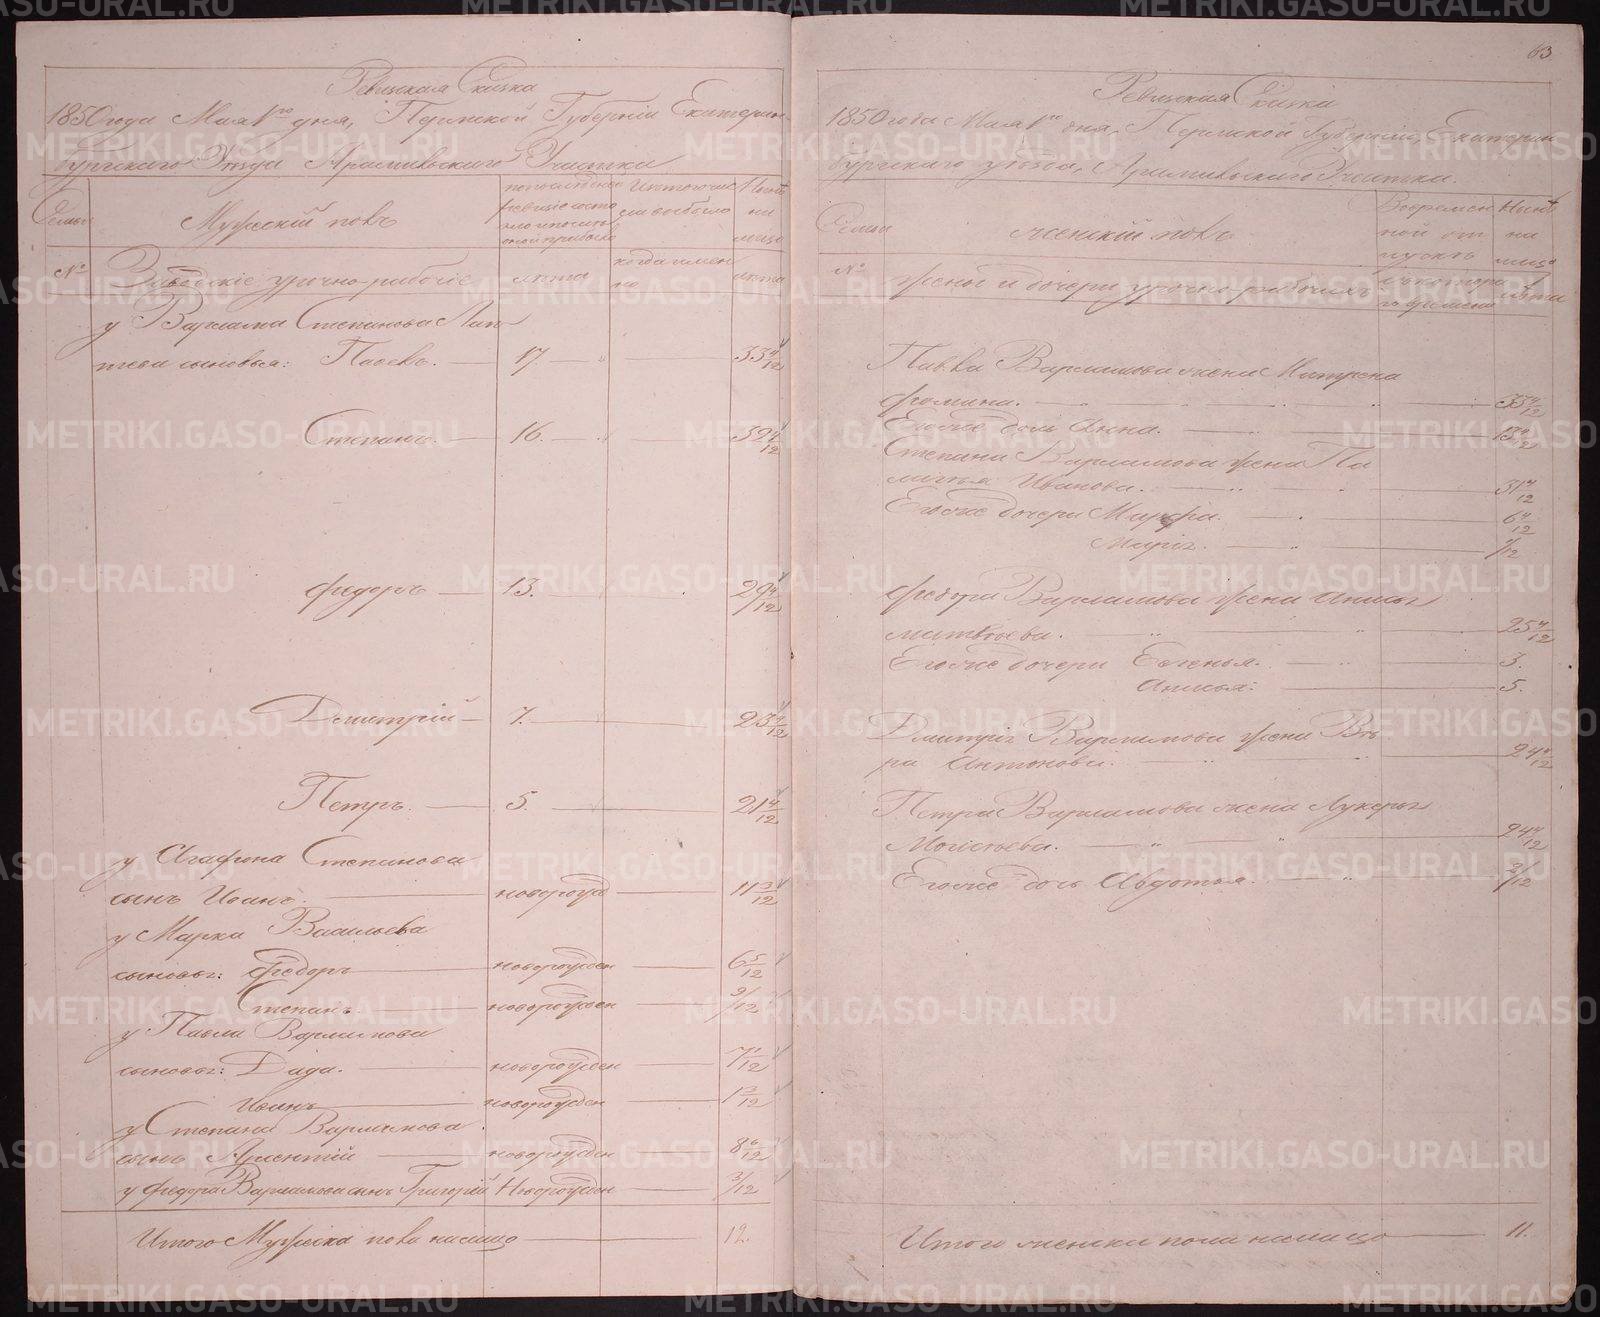 Ревизская Сказка
1850 года Мая 1го дня, Пермской Губернiи Екатерин-
бургскаго Уезда Арамильскаго Участка
Семьи
Мужескiй полъ
по последней ревизiи состояло и после оной прибыло
Изъ того числа выбыло
Ныне на лицо
№
Заводскiе урочно-рабочiе
лета
когда имен но
лета
у Варлама Степанова Лап
тева сыновья: Павелъ. 17. 33 4/12
Степанъ. 16. 32 4/12
Федоръ 13. 29 4/12
Дмитрiй 7. 23 4/12
Петръ. 5. 21 4/12
у Агафона Степанова
сынъ Иванъ. новорожд 11 3/12
у Марка Васильева
сыновья: Федоръ новорожден 6 5/12
Степанъ. новорожден 9/12
у Павла Варламова
сыновья: новорожден 7 1/12
Иванъ новорожден 1 3/12
у Степана Варламова
сынъ новорожден 8 6/12
у Федора Варламова сынъ Григорiй Новорожден 3/12
Итого Мужеска пола на лицо 12.
63
Ревизская Сказка
1850 года Мая 1го дня, Пермской Губернiи, Екатерин
бургскаго уезда, Арамильскаго Участка.
Семьи
Женскiй полъ
Во времен ной от лучке
Ныне на лицо
№
Жены и дочери урочно-рабочихъ
с котора го времени
лета
Павла Варламова жена Матрена
Фомина. 35 4/12
Его же дочь Анна. 13 9/12
Степана Варламова жена Па
лагья Иванова. 31 4/12
Его же дочери Марфа. 6 4/12
Марiя. 4/12
Федора Варламова жена Анисья
Матвеева. 25 4/12
Его же дочери Евгенья. 3.
Анисья: 5.
Дмитрiя Варламова жена Ве
ра Антонова. 24 4/12
Петра Варламова жена Лукерья
Моисеева. 24 4/12
Его же дочь Авдотья. 3/12
Итого женска пола на лицо 11.
METRIKI.GASO-URAL.RU